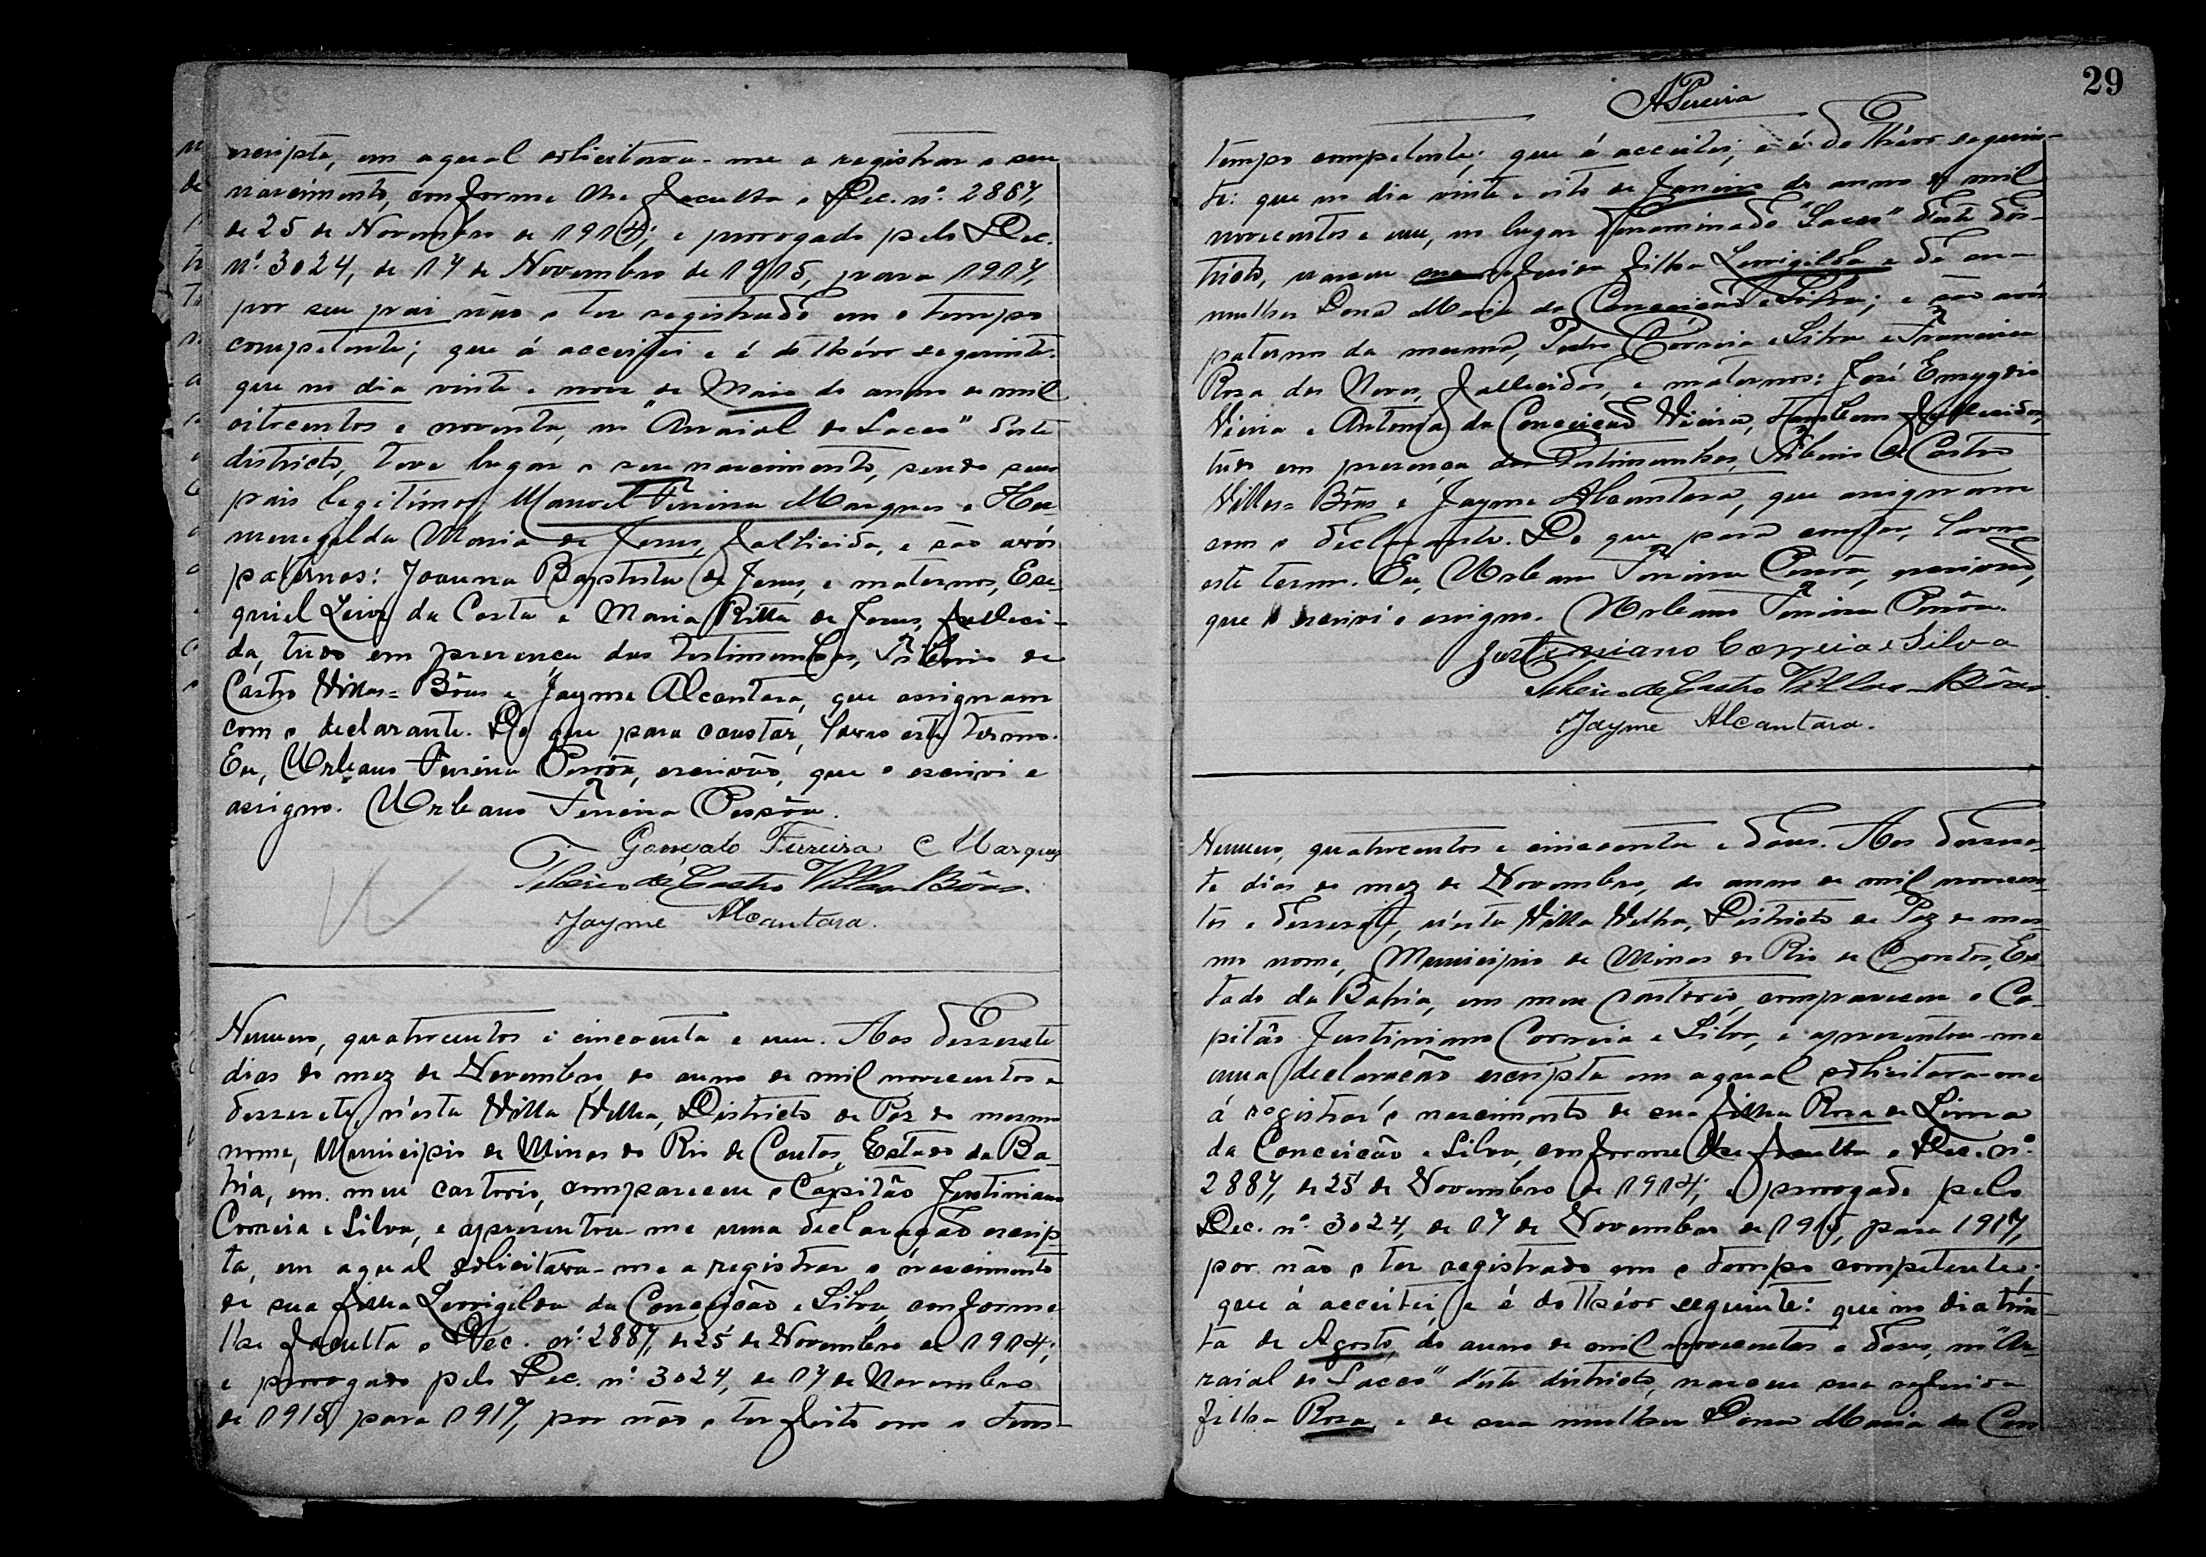 escripta, em a qual solicitava-me a registrar o seu
nascimento, conforme lhe faculta o Dec. nº. 2887,
de 25 de Novembro de 1914; e prorogado pelo Dec.
nº. 3024, de 17 de Novembro de 1915, para 1917,
por seu pai não o ter registrado em o tempo
competente; que á acceitei e é do théor seguinte:
que no dia vinte e nove de Maio do anno de mil
oitocentos e noventa, no "Arraial do Sacco" deste
districto, teve lugar o seu nascimento, sendo seus
pais legitimos Manoel Ferreira Marques e Her-
menegilda Maria de Jesus, fallecida, e são avós
paternos: Joanna Baptista de Jesus, e maternos, Eze-
quiel da Costa e Maria Ritta de Jesus, falleci-
da, tudo em presença das testimunhas, Tiberio de
Castro Villas=Bôas e Jayme Alcantara, que assignam
com o declarante. Do que para constar, lavro este termo.
Eu, Urbano Ferreira Pessôa, escrivão, que o escrivi e
assigno. Urbano Ferreira Pessôa.
Gonçalo Ferreira Marques
Tiberio de Castro Villas-Bôas.
Jayme Alcantara.
Numero, quatrocentos e cincoenta e um. Aos dessesete
dias do mez de Novembro, do anno de mil novecentos e
dessesete, n'esta Villa Velha, Districto de Paz do mesmo
nome, Municipio de Minas do Rio de Contas, Estado da Ba-
hia, em meu cartorio, compareceu o Capitão Justiniano
Correia e Silva, e apresentou-me uma declaração escrip-
ta, em a qual solicitava-me a registrar o nascimento
de sua filha Leovigilda da Conceição e Silva, conforme
lhe faculta o Dec. nº. 2887, de 25 de Novembro de 1914;
e prorogado pelo Dec. nº. 3024, de 17 de Novembro
de 1915, para 1917, por não o ter feito em o tem-
29
APereira
tempo competente; que á acceitei, e é do théor seguin-
te: que no dia vinte e oito de Janeiro do anno de mil
novecentos e um, no lugar denominado "Sacco" deste dis-
tricto, nasceu sua referida filha Leovigilda e de sua
mulher Dona Maria da Conceição e Silva; e são avós
paternos da mesma, Pedro Correia e Silva e Francisca
Rosa das Neves, fallecidos, e maternos: José Emygdio
Vieira e Antonia da Conceição Vieira, tambem fallecidos,
tudo em presença das testimunhas, Tiberio de Castro
Villas=Bôas e Jayme Alcantara, que assignam
com o declarante. Do que para constar, lavro
este termo. Eu, Urbano Ferreira Pessôa, escrivão,
que o escrivi e assigno. Urbano Ferreira Pessôa.
Justiniano Correia e Silva
Tiberio de Castro Villas-Bôas.
Jayme Alcantara.
Numero, quatrocentos e cincoenta e dous. Aos dessese-
te dias do mez de Novembro, do anno de mil novecen-
tos e dessesete, n'esta Villa Velha, Districto de Paz do mes-
mo nome, Municipio de Minas do Rio de Contas, Es-
tado da Bahia, em meu cartorio, compareceu o Ca-
pitão Justiniano Correia e Silva, e apresentou-me
uma declaração escripta em a qual solicitava-me
á registrar o nascimento de sua filha Rosa de Lima
da Conceição e Silva, conforme lhe faculta o Dec. nº.
2887, de 25 de Novembro de 1914; e prorogado pelo
Dec. nº. 3024, de 17 de Novembro de 1915, para 1917,
por não o ter registrado em o tempo competente;
que á acceitei, e é do théor seguinte: que no dia trin-
ta de Agosto, do anno de mil novecentos e dous, no "Ar-
raial do Sacco" d'este districto, nasceu sua referida
filha Rosa e de sua mulher Dona Maria da Con-